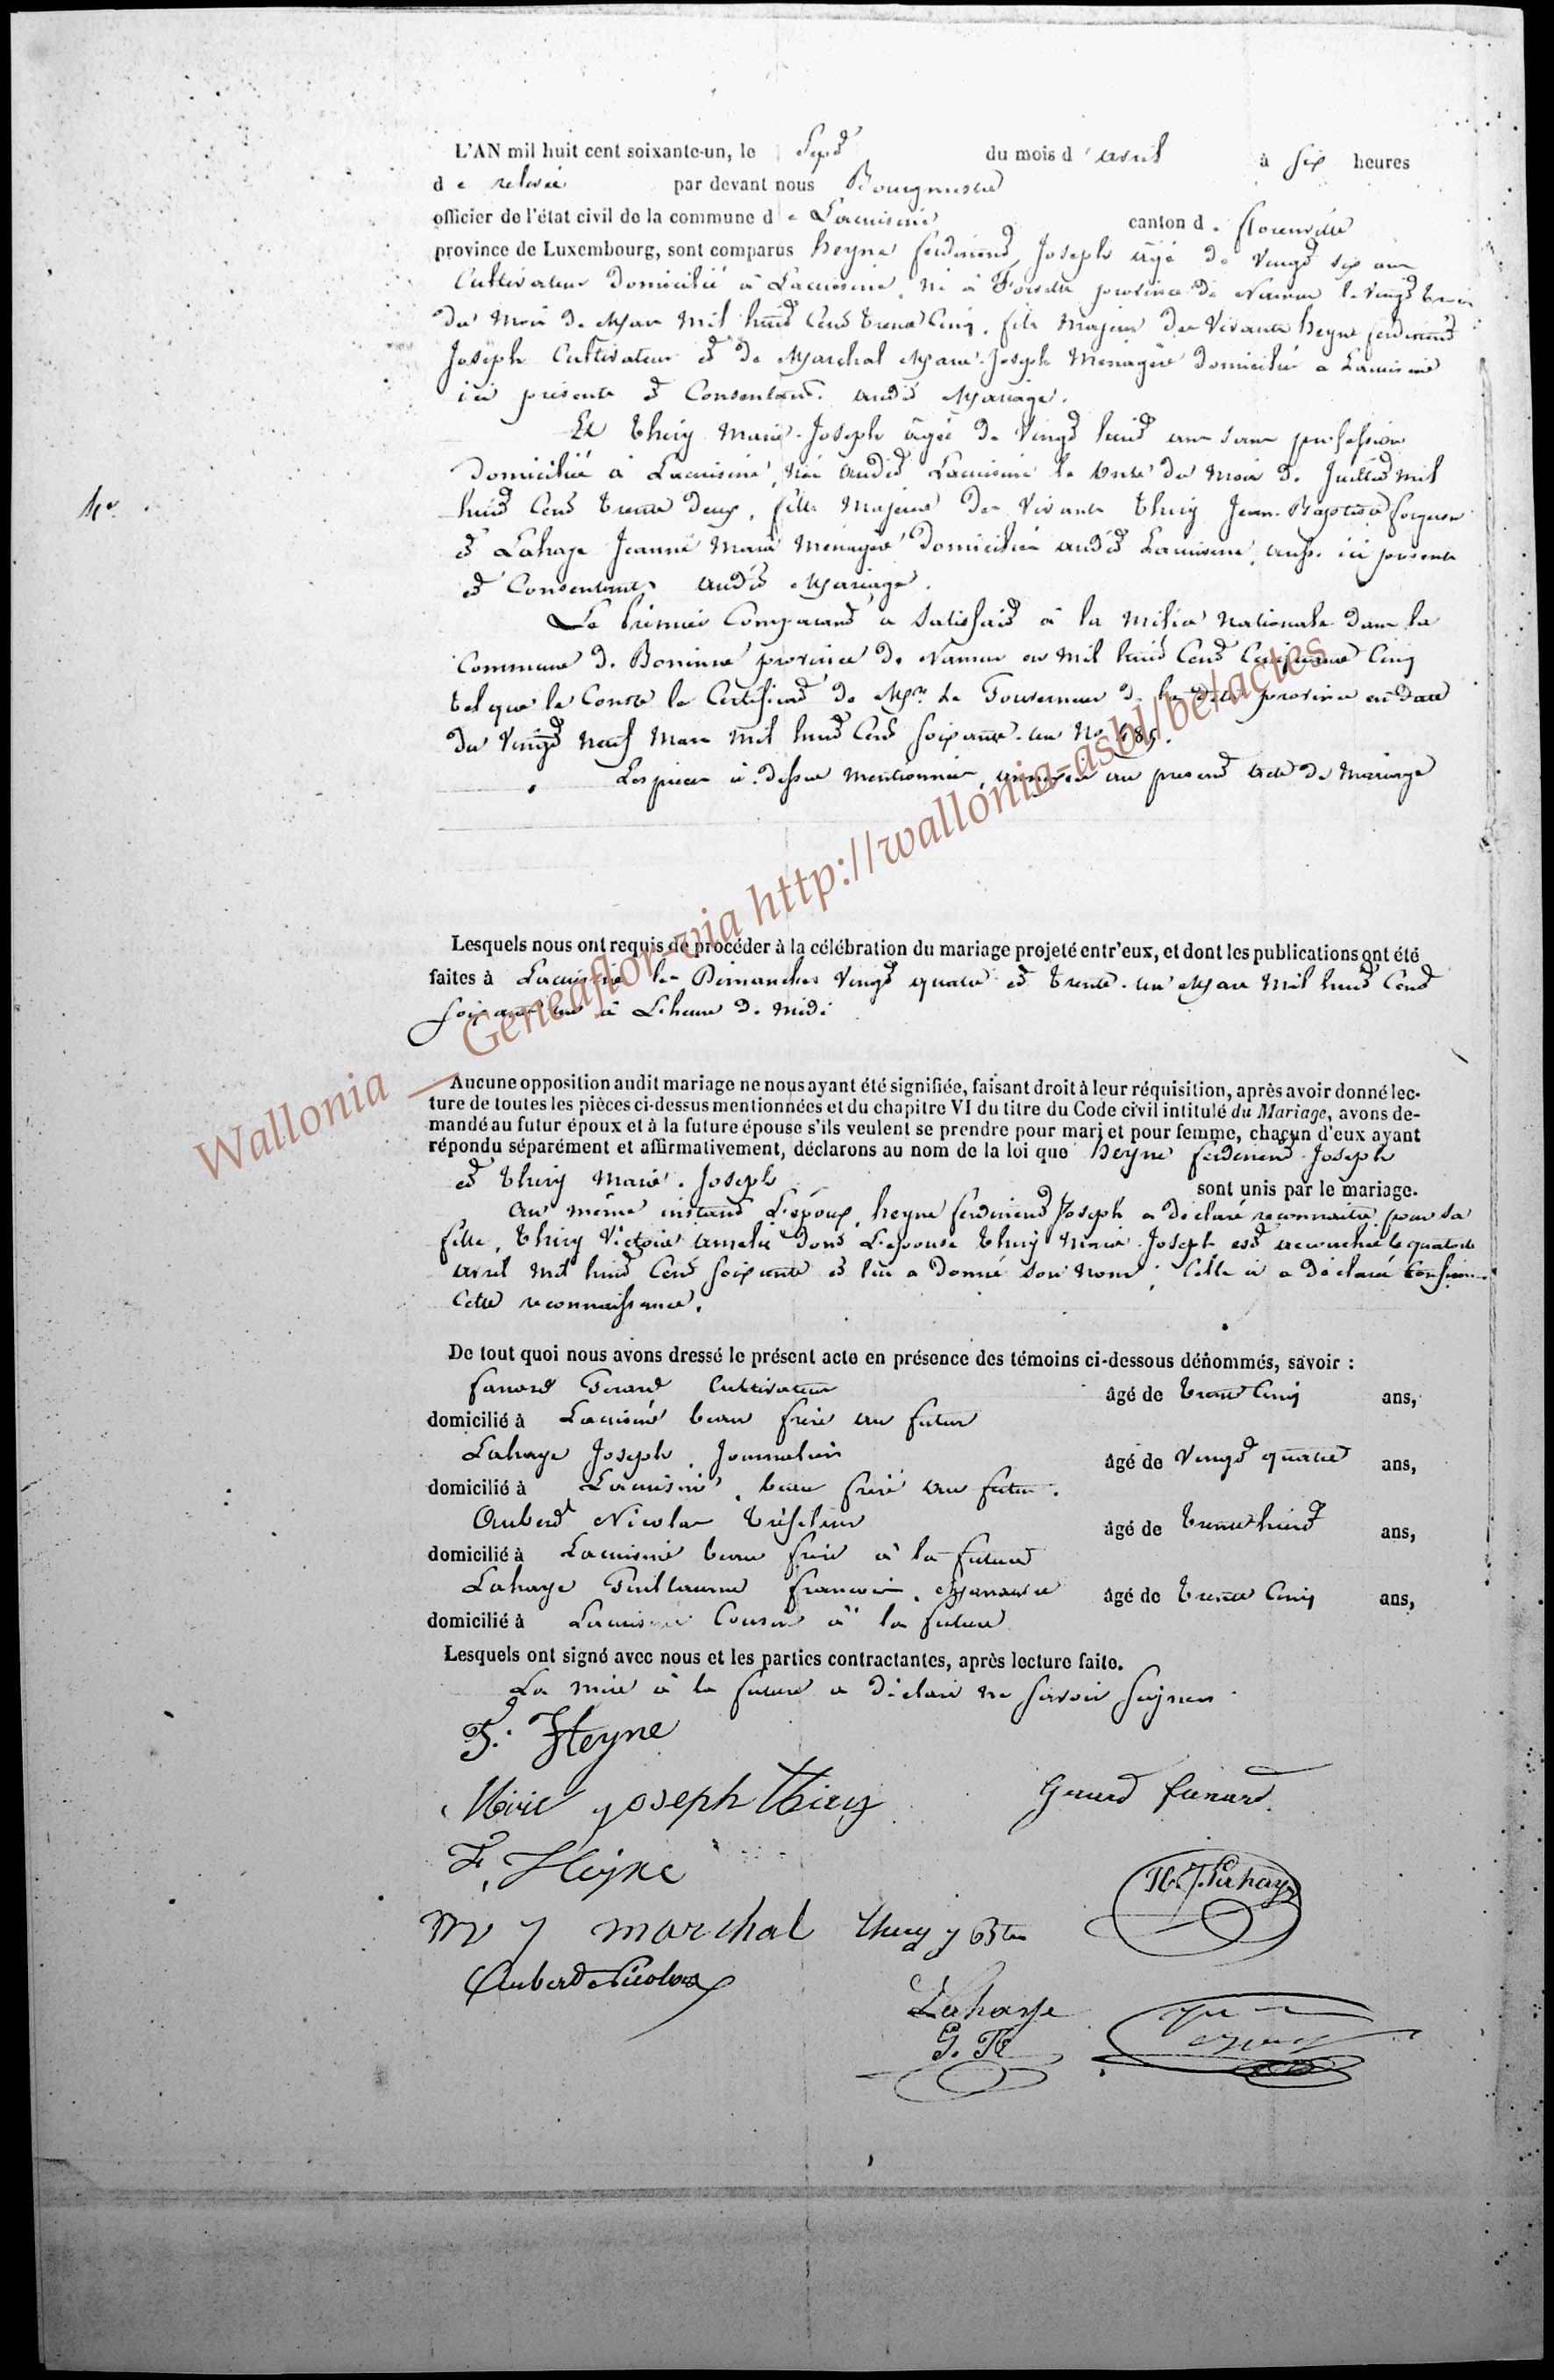 L'AN mil huit cent soixante-un, le Sept du mois d'avril à six heures
de relevée par devant nous Bourgmestre
officier de l'état civil de la commune de Lacuisine canton d. florenville
province de Luxembourg, sont comparus heyne ferdinend Joseph âgé de Vingt six ans
Cultivateur domicilié à Lacuisine, né à province de Namur le Vingt trois
du Mois de Mars Mil huit Cent trente Cinq, fils Majeur des Vivants heyne ferdinend
Joseph Cultivateur et de Marchal Marie-Joseph Ménagère domicilié à Lacuisine
ici présents et Consentans audit Mariage.
Et thiry Marie-Joseph âgée de Vingt huit ans sans profession
domiciliée à Lacuisine, née audit Lacuisine le onze du Mois de Juillet Mil
4e.
huit Cent trente deux, fille Majeure des Vivants thiry Jean-Baptiste forgeron
et Lahaye Jeanne Marie Ménagère domiciliés audit Lacuisine, aussi ici présents
et Consentants audit Mariage.
Le premier Comparant a Satisfait à la Milice Nationale dans la
Commune de Boninne province de Namur en Mil huit Cent Cinquante Cinq
tel que le Conste le Certificat de Mr. Le Gouverneur de la dite province en date
du Vingt Neuf Mars Mil huit Cent soixante-un No
Les pièces ci-dessus Mentionnées, annexées au présent acte de Mariage
Lesquels nous ont requis de procéder à la célébration du mariage projeté entr'eux, et dont les publications ont été
faites à Lacuisine les Dimanches Vingt quatre et trente-un Mars Mil huit Cent
soixante un à L'heure de Midi
Aucune opposition audit mariage ne nous ayant été signifiée, faisant droit à leur réquisition, après avoir donné lec-
ture de toutes les pièces ci-dessus mentionnées et du chapitre VI du titre du Code civil intitulé du Mariage, avons de-
mandé au futur époux et à la future épouse s'ils veulent se prendre pour mari et pour femme, chacun d'eux ayant
répondu séparément et affirmativement, déclarons au nom de la loi que heyne ferdinend Joseph
et thiry Marie-Joseph sont unis par le mariage.
au même instant L'époux, heyne ferdinend Joseph a déclaré reconnaitre pour sa
fille, thiry Victoire amelie dont L'épouse thiry Marie Joseph est accouchée le quatorze
avril Mil huit Cent soixante et lui a donné son nom; Celle ci a déclaré Confirmer
Cette reconnaissance.
De tout quoi nous avons dressé le présent acte en présence des témoins ci-dessous dénommés, savoir :
fanard Gerard Cultivateur âgé de trente Cinq ans,
domicilié à Lacuisine beau frère au futur
Lahaye Joseph, Journalier âgé de Vingt quatre ans,
domicilié à Lacuisine, beau frère au futur.
Aubert Nicolas tréfileur âgé de trente huit ans,
domicilié à Lacuisine beau frère à la future
Lahaye Guillaume francois, Manœuvre âgé de trente Cinq ans,
domicilié à Lacuisine Cousin à la future
Lesquels ont signé avec nous et les parties contractantes, après lecture faite.
La mère à la future a déclaré ne savoir signer.
F. Heyne
Marie joseph thiry Gerard fanard
F. Heyne
H. J. Lahaye
m j marchal thiry j Bte
Aubert Nicolas
Lahaye
G. F.
Wallonia __ Geneaflor-via http://wallonia-asbl/be/actes